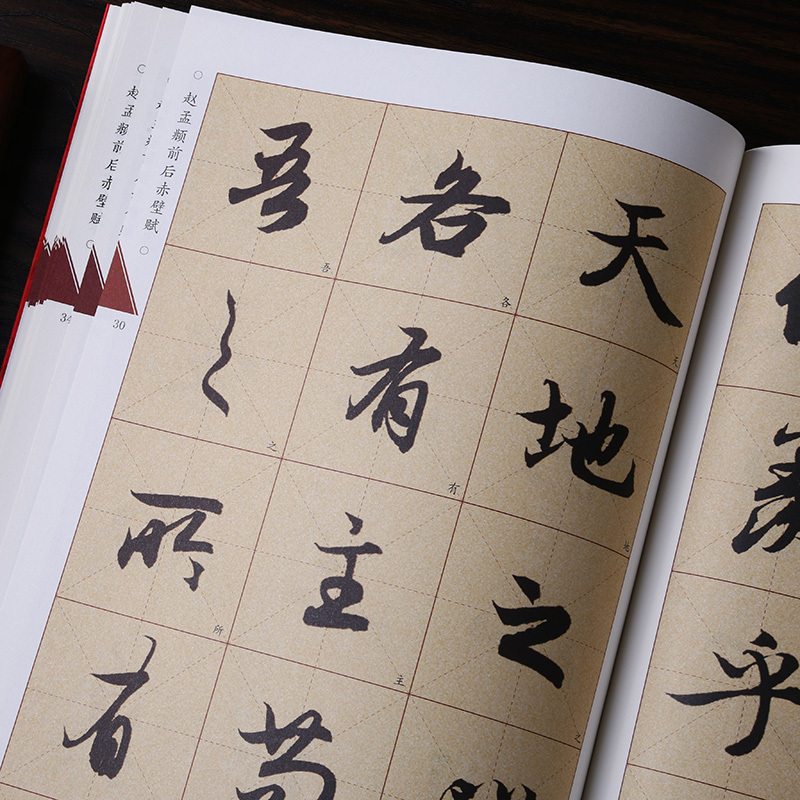 赵孟頫前后赤壁赋
孟頫前后赤壁赋
34
30
羡乎
天地之
天地之
各有主苟
各有主
吾之所有
吾之所